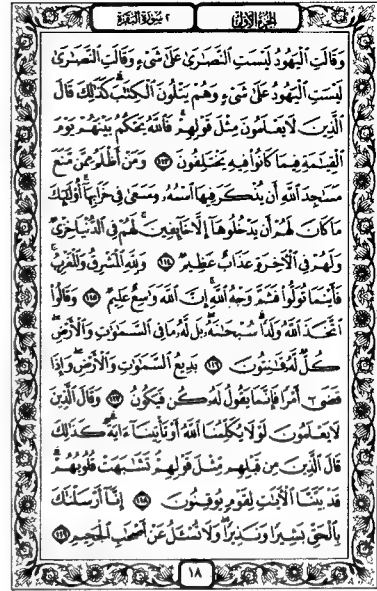 الجزء الأول ٢ سورة البقرة
وَقَالَتِ ٱلْيَهُودُ لَيْسَتِ ٱلنَّصَٰرَىٰ عَلَىٰ شَىْءٍ وَقَالَتِ ٱلنَّصَٰرَىٰ
لَيْسَتِ ٱلْيَهُودُ عَلَىٰ شَىْءٍ وَهُمْ يَتْلُونَ ٱلْكِتَٰبَ ۗ كَذَٰلِكَ قَالَ
ٱلَّذِينَ لَا يَعْلَمُونَ مِثْلَ قَوْلِهِمْ ۚ فَٱللَّهُ يَحْكُمُ بَيْنَهُمْ يَوْمَ
ٱلْقِيَٰمَةِ فِيمَا كَانُوا۟ فِيهِ يَخْتَلِفُونَ ١١٣ وَمَنْ أَظْلَمُ مِمَّن مَّنَعَ
مَسَٰجِدَ ٱللَّهِ أَن يُذْكَرَ فِيهَا ٱسْمُهُۥ وَسَعَىٰ فِى خَرَابِهَآ ۚ أُو۟لَٰٓئِكَ
مَا كَانَ لَهُمْ أَن يَدْخُلُوهَآ إِلَّا خَآئِفِينَ ۚ لَهُمْ فِى ٱلدُّنْيَا خِزْىٌ
وَلَهُمْ فِى ٱلْـَٔاخِرَةِ عَذَابٌ عَظِيمٌ ١١٤ وَلِلَّهِ ٱلْمَشْرِقُ وَٱلْمَغْرِبُ ۚ
فَأَيْنَمَا تُوَلُّوا۟ فَثَمَّ وَجْهُ ٱللَّهِ ۚ إِنَّ ٱللَّهَ وَٰسِعٌ عَلِيمٌ ١١٥ وَقَالُوا۟
ٱتَّخَذَ ٱللَّهُ وَلَدًا ۗ سُبْحَٰنَهُۥ ۖ بَل لَّهُۥ مَا فِى ٱلسَّمَٰوَٰتِ وَٱلْأَرْضِ ۖ
كُلٌّ لَّهُۥ قَٰنِتُونَ ١١٦ بَدِيعُ ٱلسَّمَٰوَٰتِ وَٱلْأَرْضِ ۖ وَإِذَا
قَضَىٰٓ أَمْرًا فَإِنَّمَا يَقُولُ لَهُۥ كُن فَيَكُونُ ١١٧ وَقَالَ ٱلَّذِينَ
لَا يَعْلَمُونَ لَوْلَا يُكَلِّمُنَا ٱللَّهُ أَوْ تَأْتِينَآ ءَايَةٌ ۗ كَذَٰلِكَ
قَالَ ٱلَّذِينَ مِن قَبْلِهِم مِّثْلَ قَوْلِهِمْ ۘ تَشَٰبَهَتْ قُلُوبُهُمْ ۗ
قَدْ بَيَّنَّا ٱلْـَٔايَٰتِ لِقَوْمٍ يُوقِنُونَ ١١٨ إِنَّآ أَرْسَلْنَٰكَ
بِٱلْحَقِّ بَشِيرًا وَنَذِيرًا ۖ وَلَا تُسْـَٔلُ عَنْ أَصْحَٰبِ ٱلْجَحِيمِ ١١٩
١٨